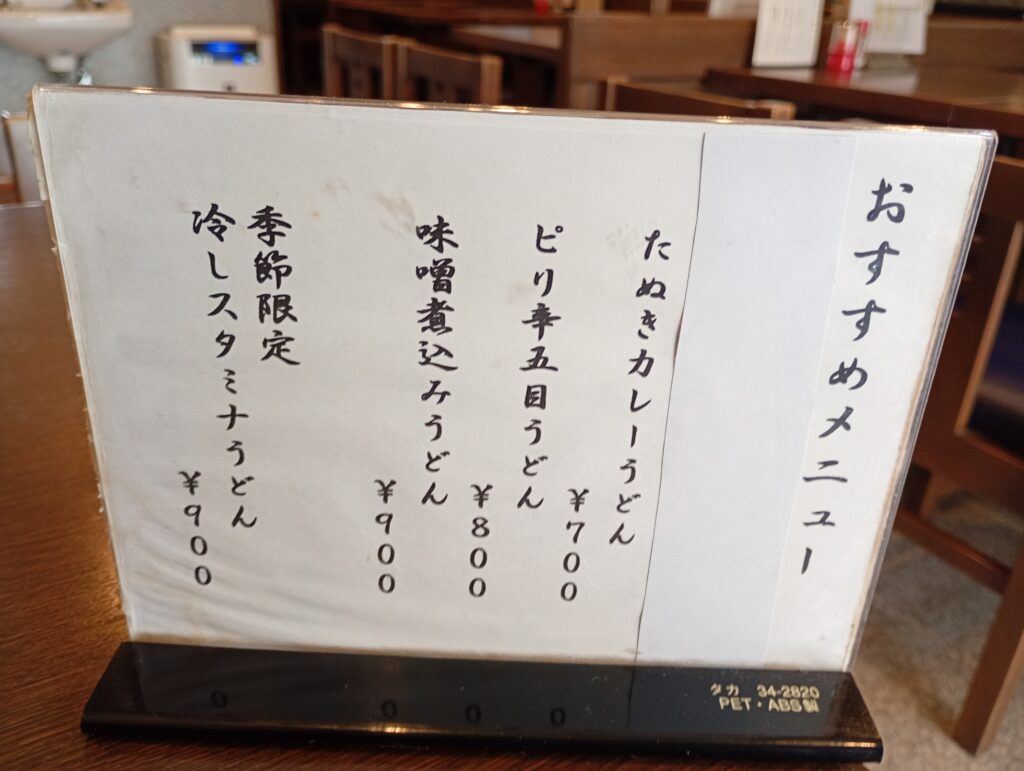 おすすめメニュー
たぬきカレーうどん
￥700
ピリ辛五目うどん
￥800
味噌煮込みうどん
￥900
季節限定
冷しスタミナうどん
￥900
タカ 34-2820
PET・ABS製